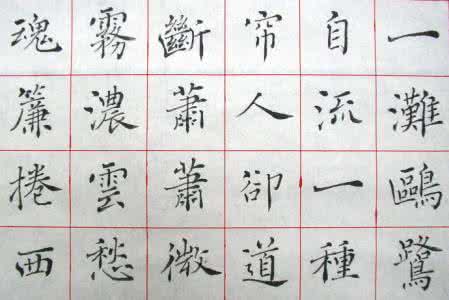 一灘鷗鷺
自流一種
帘人卻道
斷蕭蕭微
霧濃雲愁
魂簾捲西